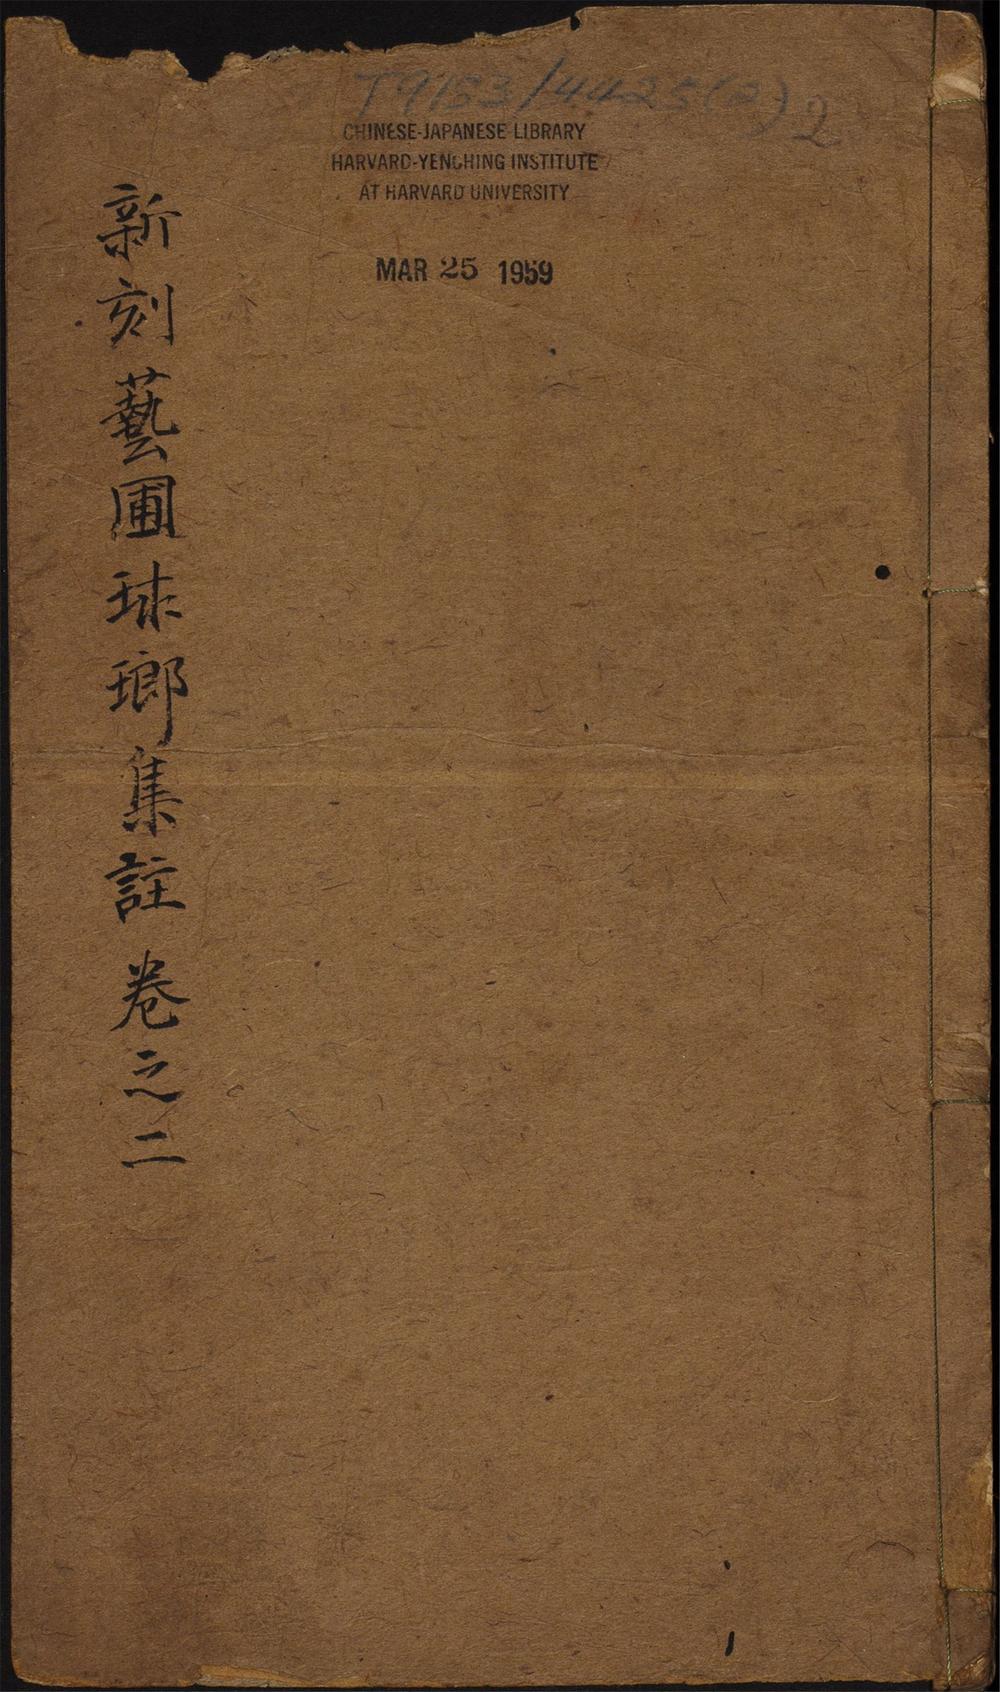 T9153/4425(2) 2
CHINESE-JAPANESE LIBRARY
HARVARD-YENCHING INSTITUTE
AT HARVARD UNIVERSITY
MAR 25 1959
新刻藝圃球瑯集註 卷之二